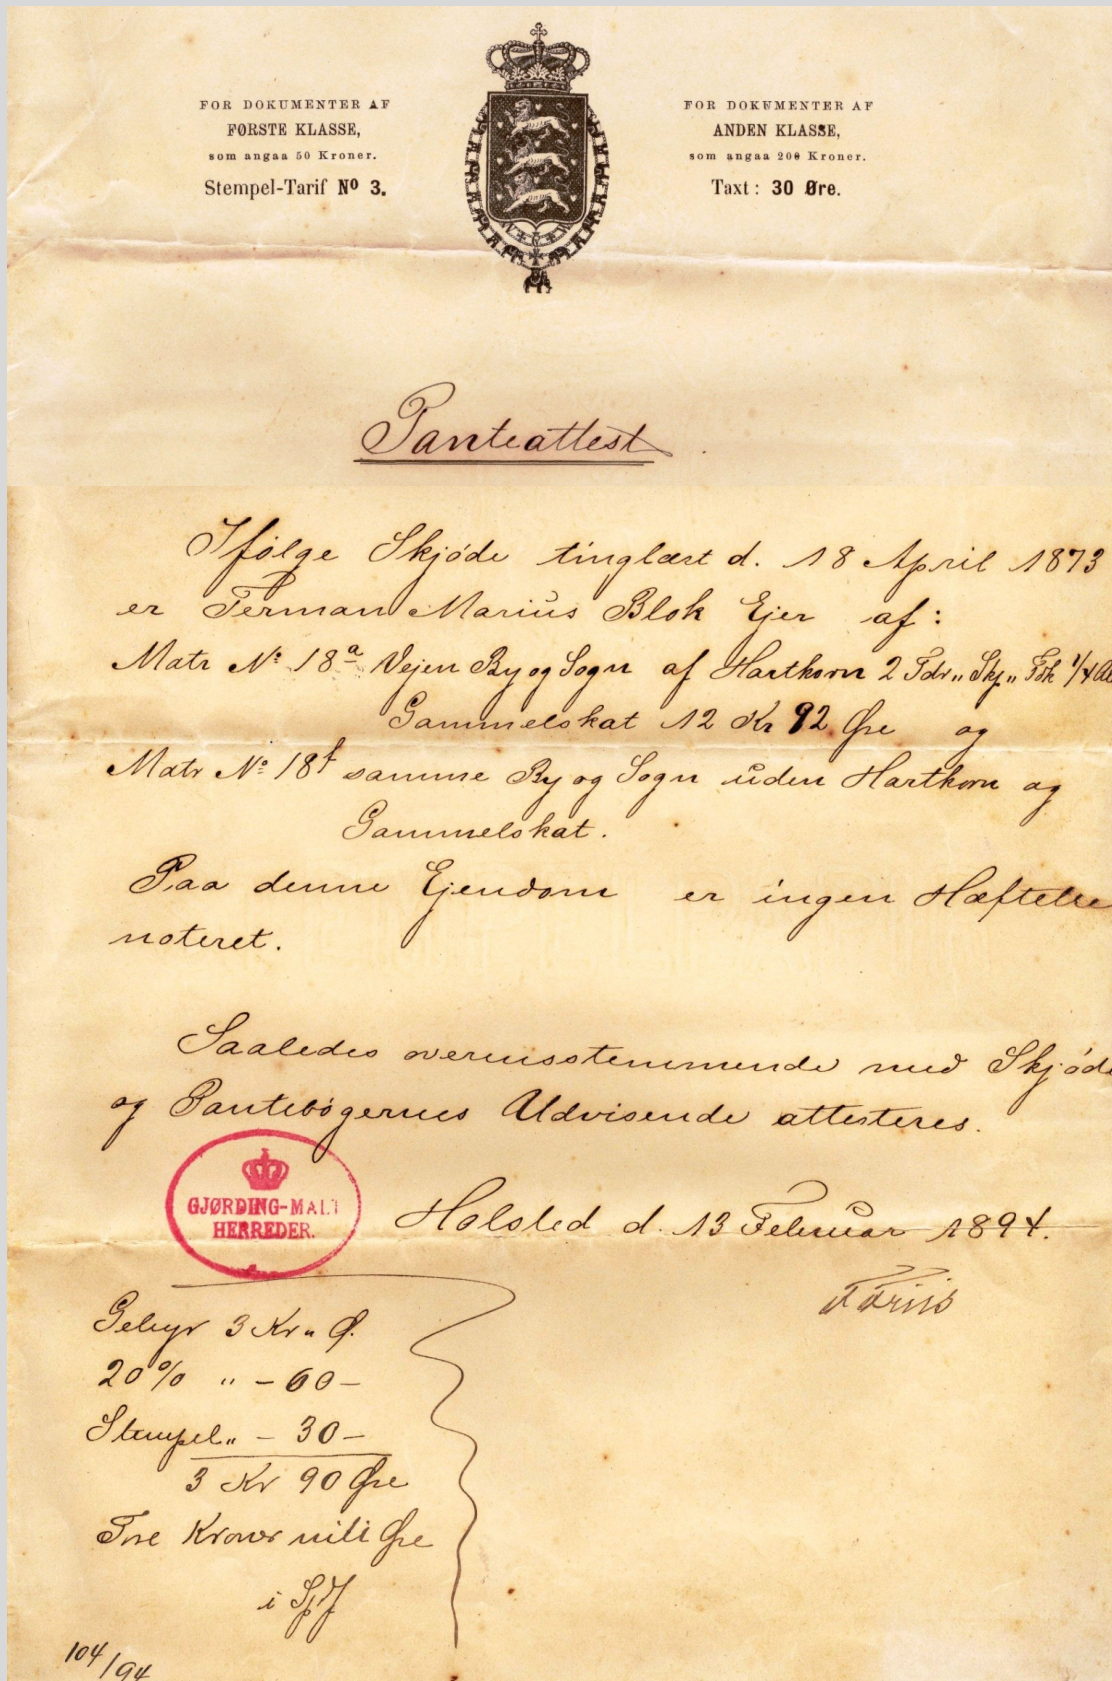 FOR DOKUMENTER AF
FØRSTE KLASSE,
som angaa 50 Kroner.
Stempel-Tarif Nº 3.
FOR DOKUMENTER AF
ANDEN KLASSE,
som angaa 200 Kroner.
Taxt: 30 Øre.
Panteattest.
Ifølge Skjøde tinglæst d. 18 April 1873
er Terman Marius Blok Ejer af:
Matr Nº 18a Vejen By og Sogn af Hartkorn 2 Tdr „ Skj „ Fdk 1/4 Al
Gammelskat 12 Kr 92 Øre og
Matr Nº 18f samme By og Sogn uden Hartkorn og
Gammelskat.
Paa denne Ejendom er ingen Hæftelse
noteret.
Saaledes overensstemmende med Skjøde
og Pantebøgernes Udvisende attesteres.
GJØRDING-MALT
HERREDER.
Holsted d. 13 Februar 1894.
Friis
Gebyr 3 Kr „ Ø.
20% „ – 60 –
Stempel „ – 30 –
3 Kr 90 Øre
Tre Kroner niti Øre
104/94